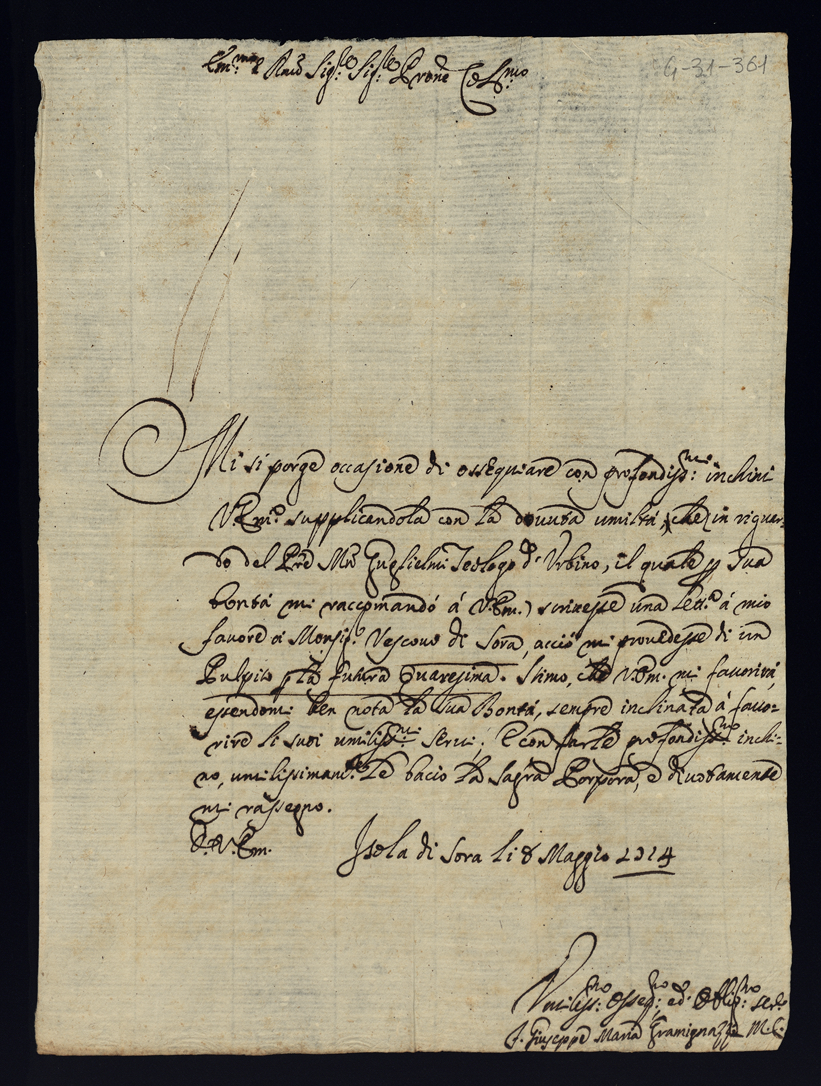 Em.mo e Rmo Sig.re Sig.re Prone Col.mo
G-31-361
Mi si porge occasione di ossequiare con profondiss.mo inchini
V.Em.a supplicandola con la dovuta umiltà, che (in riguar-
do del Pre Mro Guglielmi Teologo d'Urbino, il quale p sua
bontà mi raccomandò à V.Em.) scrivesse una lett.a à mio
favore à Monsig.r Vescovo di Sora, acciò mi provedesse di un
Pulpito p la futura Quaresima. Stimo, che V.Em. mi favorirà,
essendomi ben nota la sua Bontà, sempre inclinata à favo-
rire li suoi umiliss.mi servi; E con farle profondiss.mo inchi-
no, umilissimam.te le bacio la Sagra Porpora, e divotamente
mi rassegno.
D. V. Em.
Isola di Sora li 8 Maggio 1714
Umiliss.mo Osseq.mo ed Obblig.mo ser.e
F. Giuseppe Maria Gramignazzi M.C.